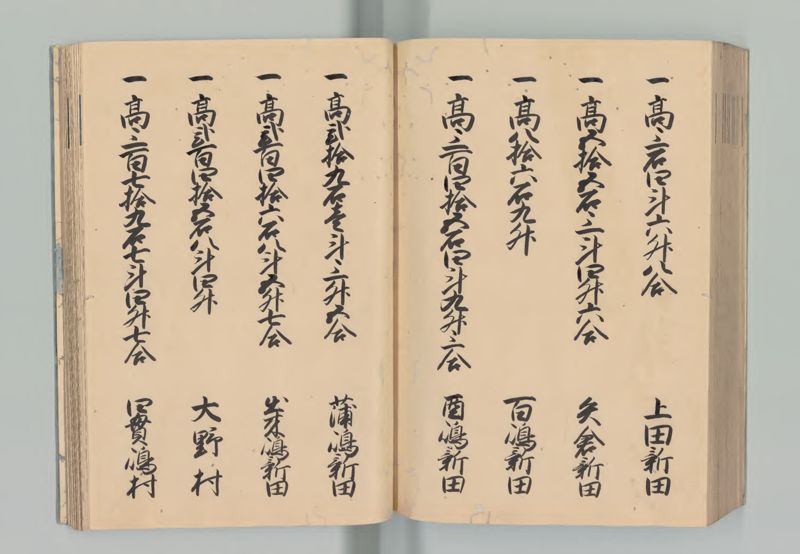 一 髙三石四斗六升八合 上田新田
一 髙五拾五石三斗四升六合 矢倉新田
一 髙八拾六石九升 百嶋新田
一 髙三百四拾五石四斗九升三合 酉嶋新田
一 髙弐拾九石壱斗三升五合 蒲嶋新田
一 髙弐百四拾六石八斗五升七合 出来嶋新田
一 髙弐百四拾五石八斗四升 大野村
一 髙三百七拾九石七斗四升七合 四貫嶋村